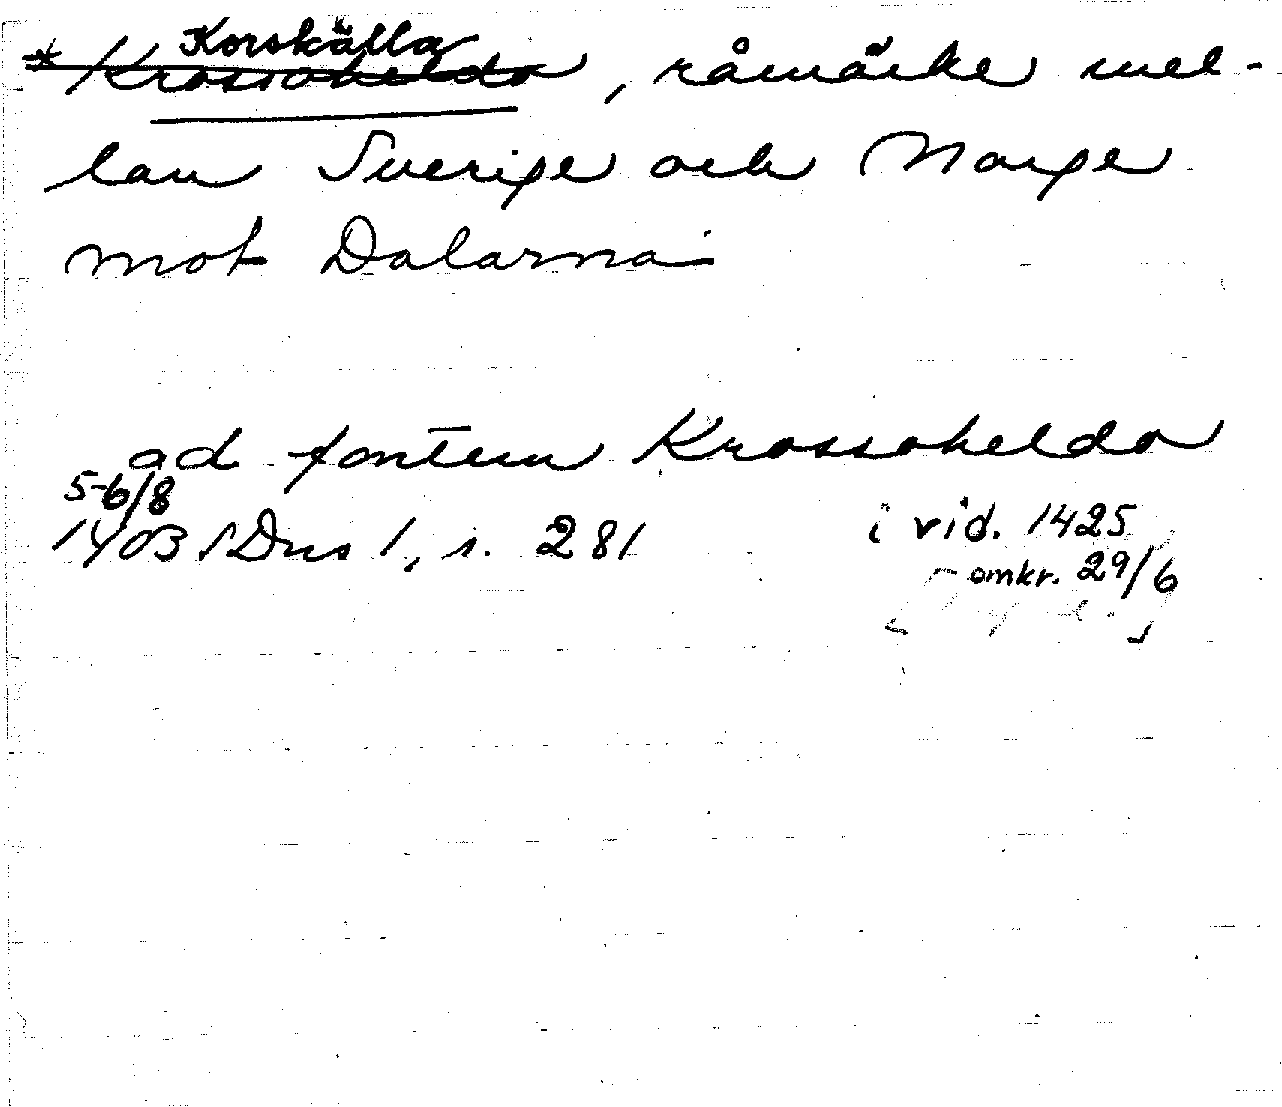 Korskälla
* Krossokelda, råmärke mel-
lan Sverige och Norge
mot Dalarna
ad fontem Krossokelda
5-6/8
1403 SDns 1, s. 281 i vid. 1425
omkr. 29/6